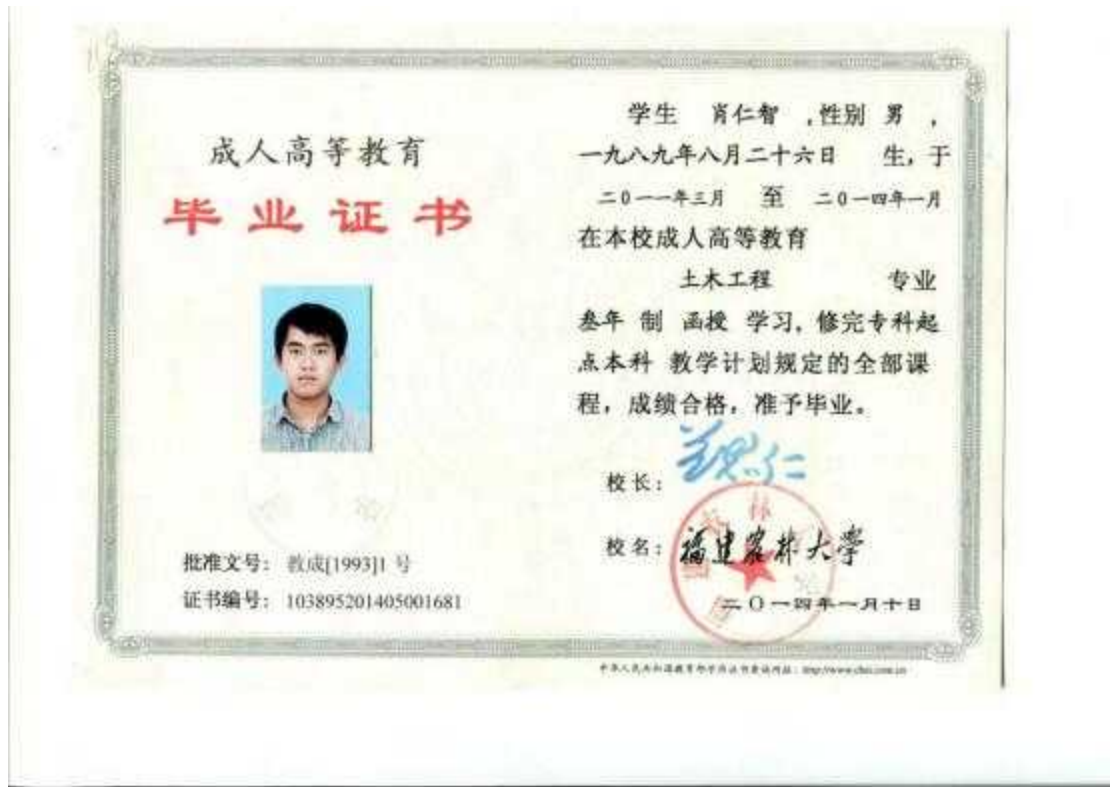 成人高等教育
毕业证书
批准文号： 教成[1993]1 号
证书编号： 103895201405001681
学生 肖仁智 ，性别 男 ，
一九八九年八月二十六日 生，于
二0一一年三月 至 二0一四年一月
在本校成人高等教育
土木工程 专业
叁年 制 函授 学习，修完专科起
点本科 教学计划规定的全部课
程，成绩合格，准予毕业。
校长：
校名： 福建农林大学
二〇一四年一月十日
中华人民共和国教育部学历证书查询网址：http://www.chsi.com.cn